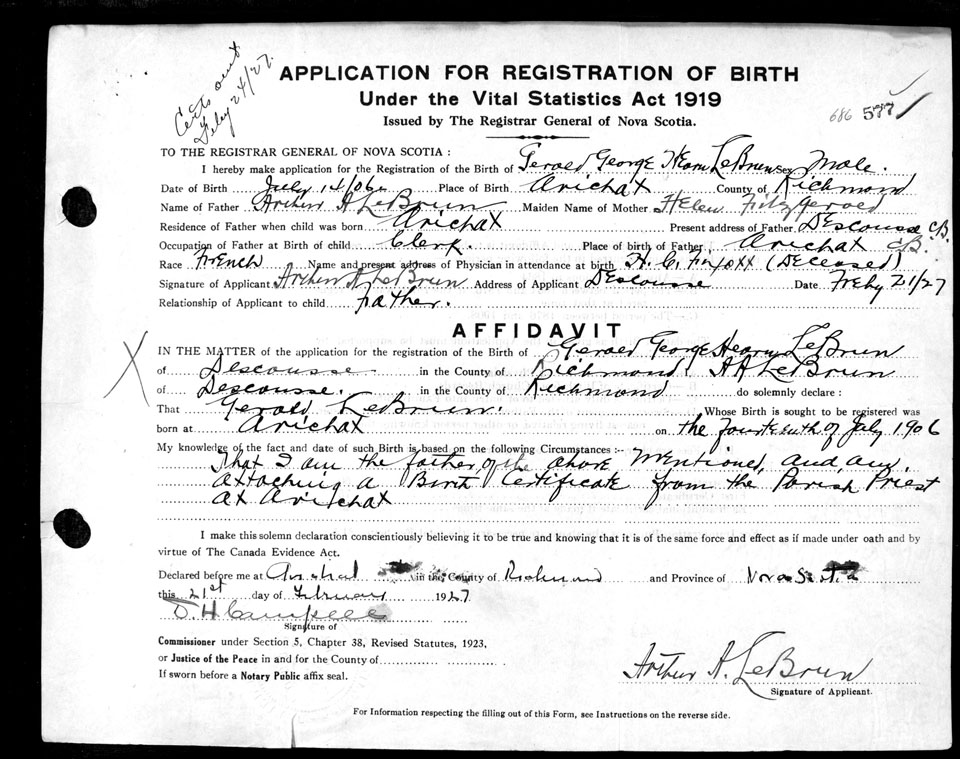 Certs out
Feby 24/27.
APPLICATION FOR REGISTRATION OF BIRTH
Under the Vital Statistics Act 1919
Issued by The Registrar General of Nova Scotia.
686 577
TO THE REGISTRAR GENERAL OF NOVA SCOTIA :
I hereby make application for the Registration of the Birth of Gerald George Hearn LeBrun sex Male.
Date of Birth July 14/06 Place of Birth Arichat County of Richmond
Name of Father Arthur A LeBrun Maiden Name of Mother Helen FitzGerald
Residence of Father when child was born Arichat Present address of Father Descousse C/B.
Occupation of Father at Birth of child Clerk. Place of birth of Father Arichat C/B.
Race French Name and present address of Physician in attendance at birth H. C. (Deceased)
Signature of Applicant Arthur A LeBrun Address of Applicant Descousse Date Feby 21/27
Relationship of Applicant to child Father.
AFFIDAVIT
X
IN THE MATTER of the application for the registration of the Birth of Gerald George Hearn LeBrun
of Descousse in the County of Richmond A A LeBrun
of Descousse. in the County of Richmond do solemnly declare :
That Gerald LeBrun. Whose Birth is sought to be registered was
born at Arichat on the fourteenth of July 1906
My knowledge of the fact and date of such Birth is based on the following Circumstances :--
That I am the father of the above mentioned, and am
attaching a Birth Certificate from the Parish Priest
at Arichat
I make this solemn declaration conscientiously believing it to be true and knowing that it is of the same force and effect as if made under oath and by
virtue of The Canada Evidence Act.
Declared before me at Arichat in the County of Richmond and Province of Nova Scotia
this 21st day of February 1927
D. H Campbell
Signature of
Commissioner under Section 5, Chapter 38, Revised Statutes, 1923,
or Justice of the Peace in and for the County of
If sworn before a Notary Public affix seal.
Arthur A. LeBrun
Signature of Applicant.
For Information respecting the filling out of this Form, see Instructions on the reverse side.